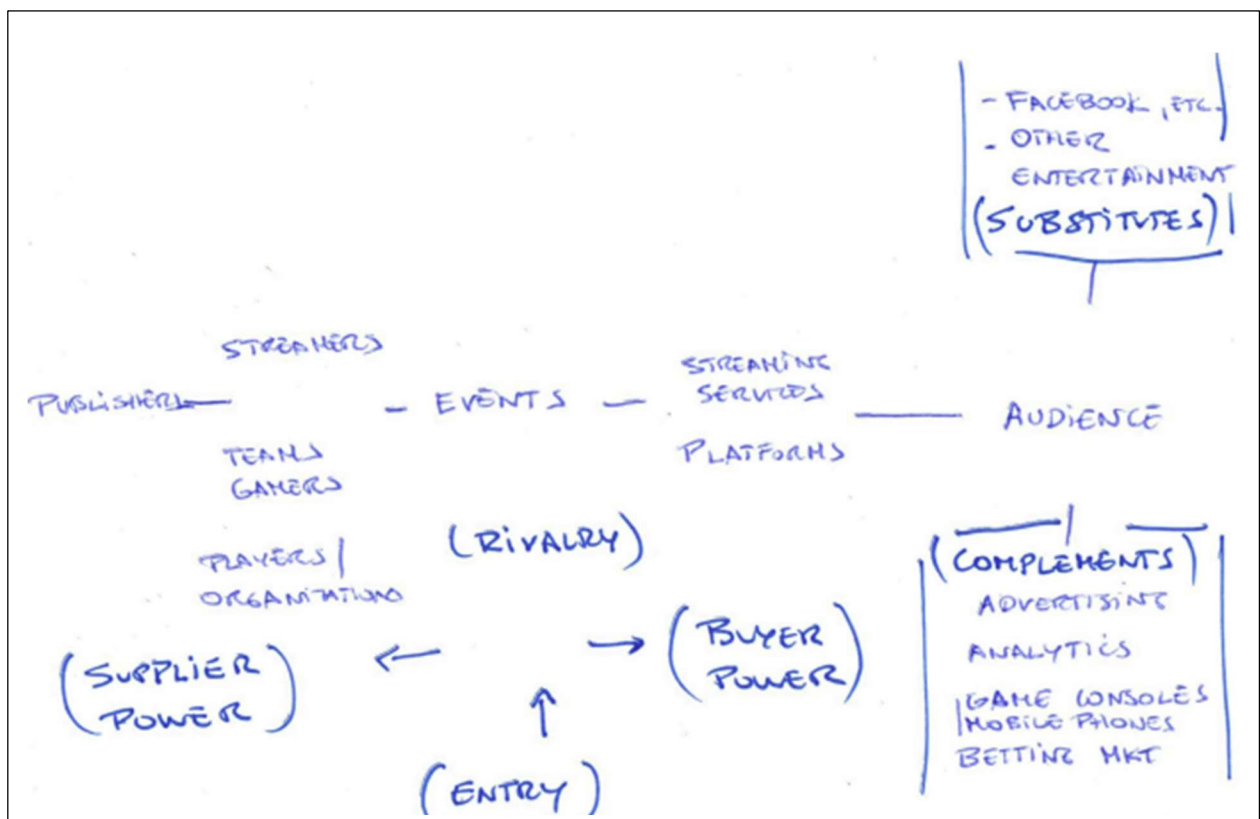 - FACEBOOK, ETC.
- OTHER
ENTERTAINMENT
(SUBSTITUTES)
STREAMERS
PUBLISHERS — - EVENTS — STREAMING
SERVICES
— AUDIENCE
PLATFORMS
TEAMS
GAMERS
(RIVALRY)
PLAYERS/
ORGANIZATIONS
(SUPPLIER
POWER)
←
→
(BUYER
POWER)
↑
(ENTRY)
(COMPLEMENTS)
ADVERTISING
ANALYTICS
GAME CONSOLES
MOBILE PHONES
BETTING MKT